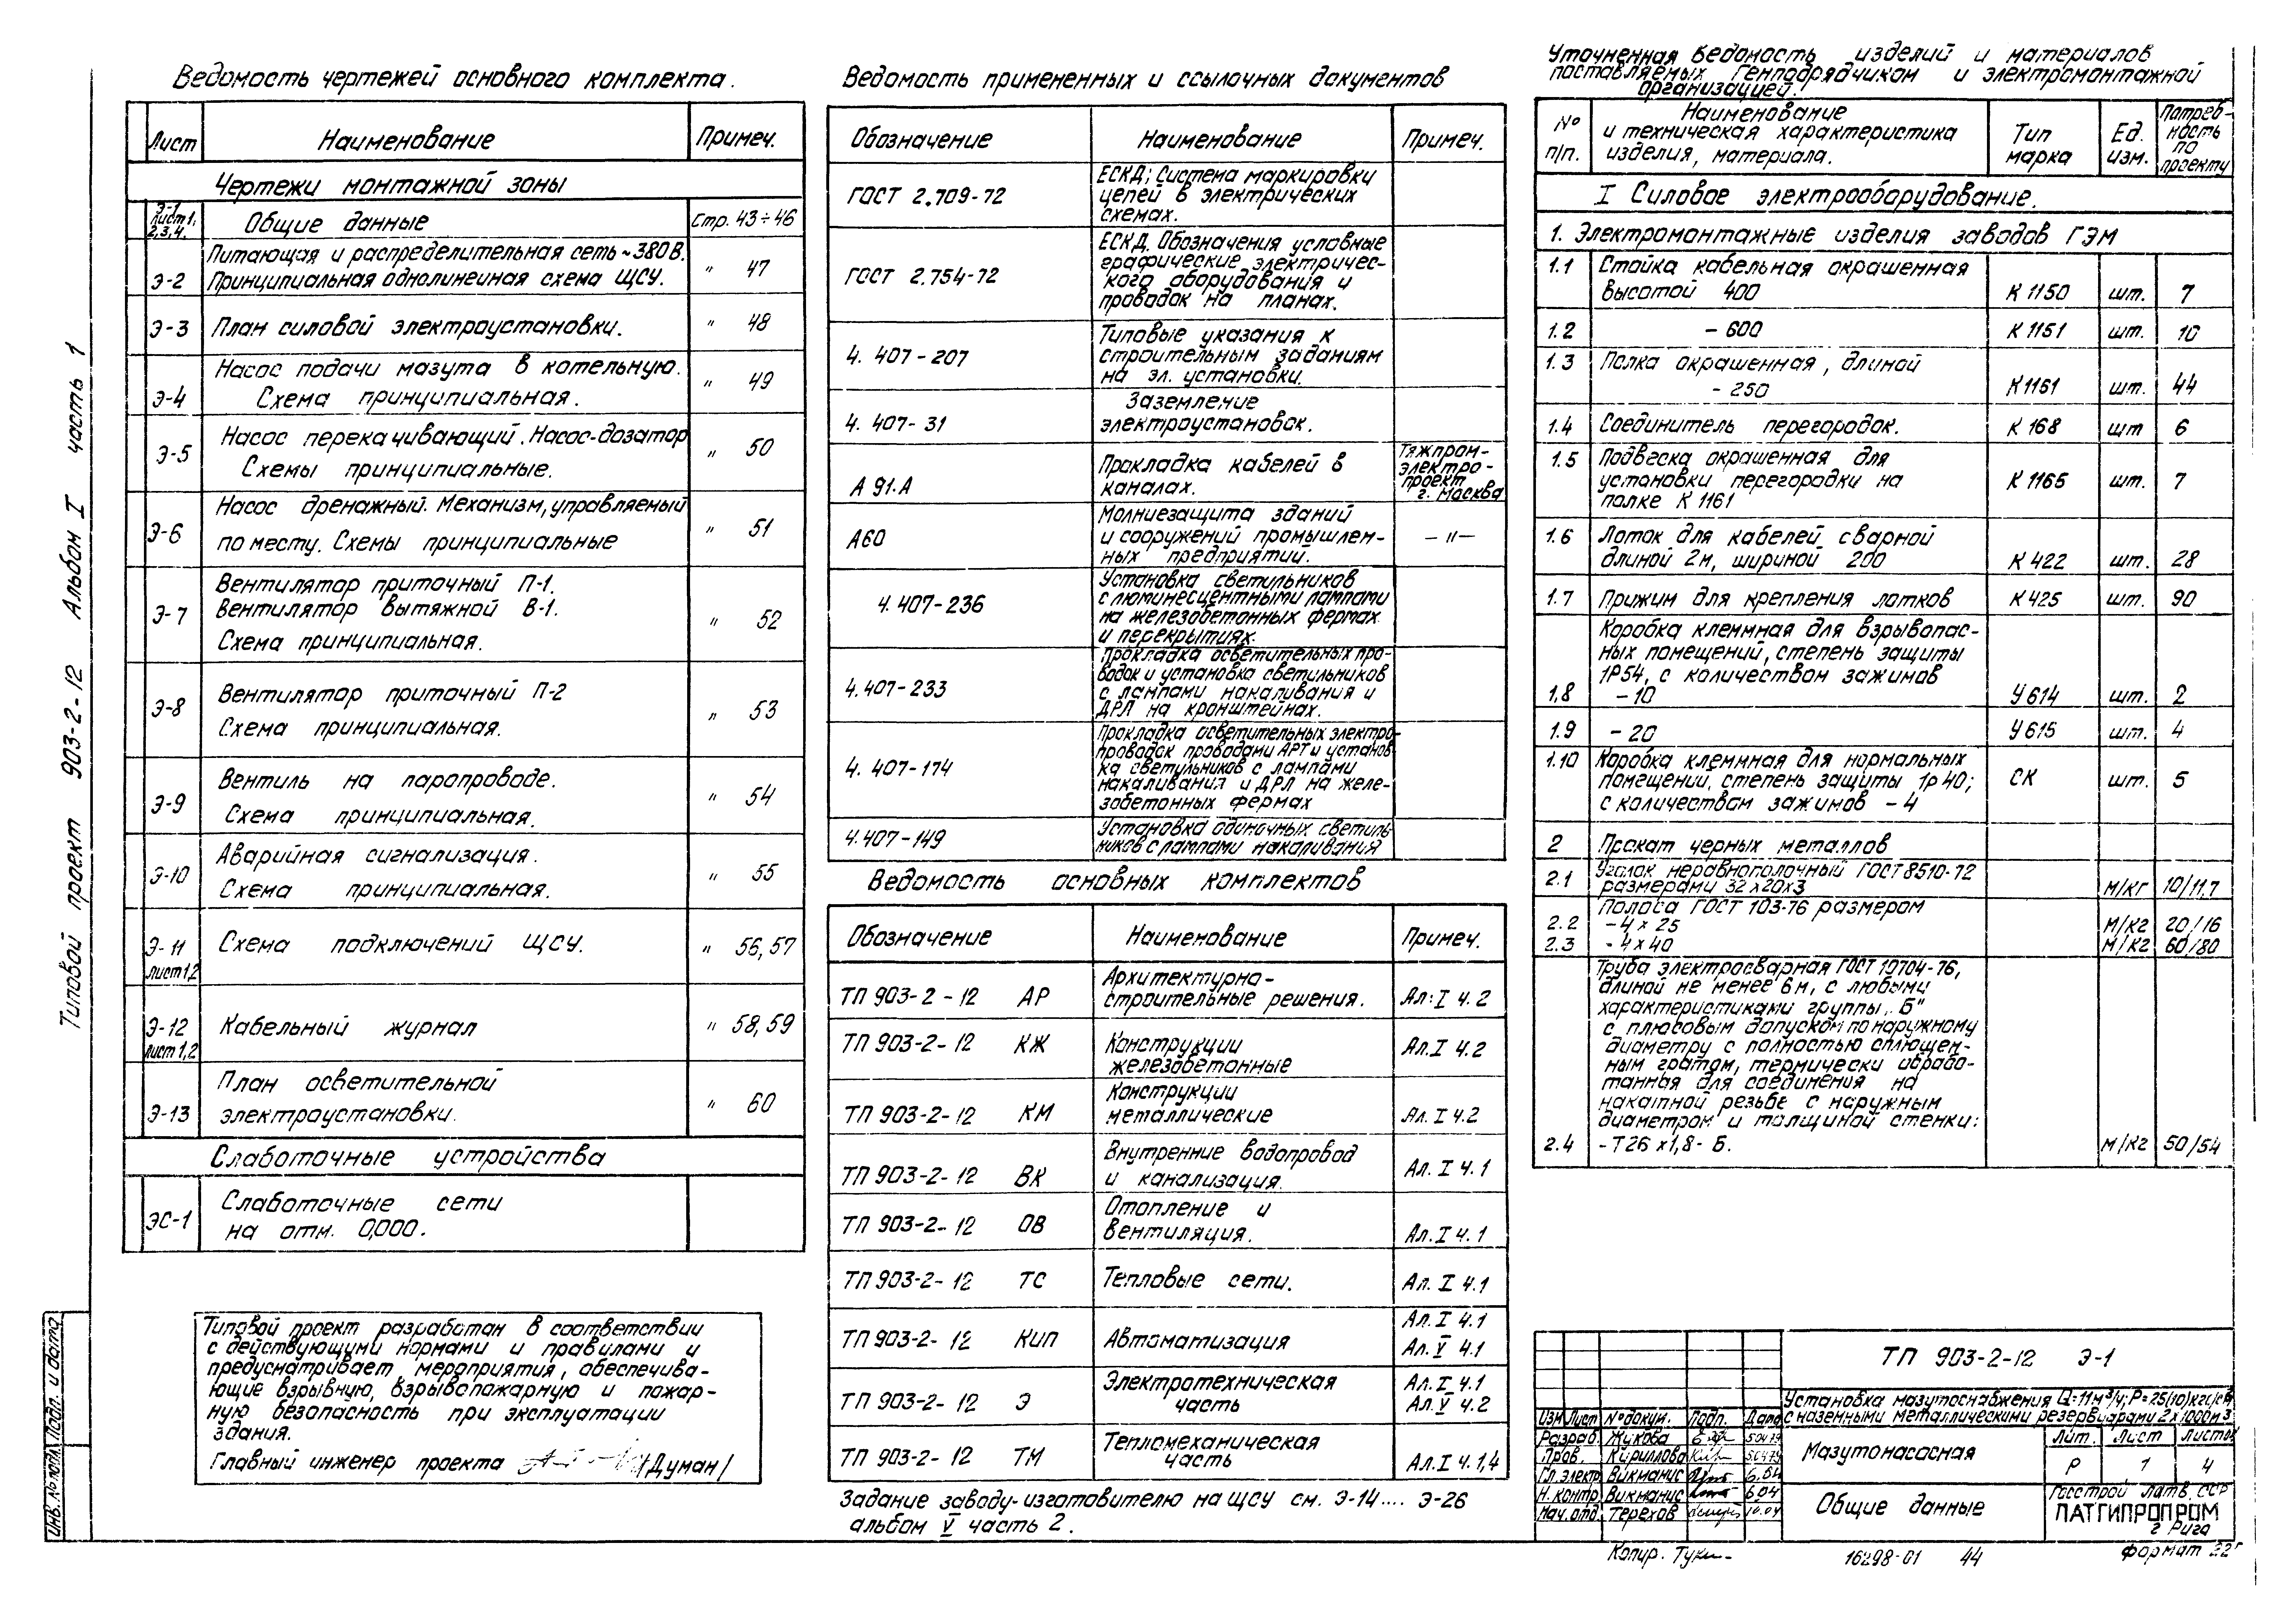 Типовой проект 903-2-12 Альбом I часть 1
Ведомость чертежей основного комплекта.
Лист Наименование Примеч.
Чертежи монтажной зоны
Э-1 лист 1, 2,3,4. Общие данные Стр. 43÷46
Питающая и распределительная сеть ~380В.
Э-2 Принципиальная однолинейная схема ЩСУ. " 47
Э-3 План силовой электроустановки. " 48
Насос подачи мазута в котельную.
Э-4 Схема принципиальная. " 49
Насос перекачивающий. Насос-дозатор
Э-5 Схемы принципиальные. " 50
Насос дренажный. Механизм, управляемый
Э-6 по месту. Схемы принципиальные " 51
Вентилятор приточный П-1.
Э-7 Вентилятор вытяжной В-1. " 52
Схема принципиальная.
Э-8 Вентилятор приточный П-2 " 53
Схема принципиальная.
Вентиль на паропроводе.
Э-9 Схема принципиальная. " 54
Аварийная сигнализация.
Э-10 Схема принципиальная. " 55
Э-11 лист 1,2 Схема подключений ЩСУ. " 56,57
Э-12 лист 1,2 Кабельный журнал " 58,59
План осветительной
Э-13 электроустановки. " 60
Слаботочные устройства
ЭС-1 Слаботочные сети
на отм. 0,000.
Типовой проект разработан в соответствии
с действующими нормами и правилами и
предусматривает мероприятия, обеспечива-
ющие взрывную, взрывопожарную и пожар-
ную безопасность при эксплуатации
здания.
Главный инженер проекта /Думан/
Ведомость примененных и ссылочных документов
Обозначение Наименование Примеч.
ГОСТ 2.709-72 ЕСКД; Система маркировки
цепей в электрических
схемах.
ГОСТ 2.754-72 ЕСКД. Обозначения условные
графические электричес-
кого оборудования и
проводок на планах.
4.407-207 Типовые указания к
строительным заданиям
на эл. установки.
4.407-31 Заземление
электроустановок.
А 91.А Прокладка кабелей в
каналах. Тяжпром-
электро-
проект
г. Москва
А60 Молниезащита зданий
и сооружений промышлен-
ных предприятий. — " —
4.407-236 Установка светильников
с люминесцентными лампами
на железобетонных фермах
и перекрытиях.
4.407-233 Прокладка осветительных про-
водок и установка светильников
с лампами накаливания и
ДРЛ на кронштейнах.
4.407-174 Прокладка осветительных электро-
проводок проводами АРТ и установ-
ка светильников с лампами
накаливания и ДРЛ на желе-
зобетонных фермах
4.407-149 Установка одиночных светиль-
ников с лампами накаливания
Ведомость основных комплектов
Обозначение Наименование Примеч.
Архитектурно-
ТП 903-2-12 АР строительные решения. Ал: I ч.2
ТП 903-2-12 КЖ Конструкции Ал. I ч.2
железобетонные
Конструкции
ТП 903-2-12 КМ металлические Ал. I ч.2
Внутренние водопровод
ТП 903-2-12 ВК и канализация. Ал. I ч.1
Отопление и
ТП 903-2-12 ОВ вентиляция. Ал. I ч.1
ТП 903-2-12 ТС Тепловые сети. Ал. I ч.1
Ал. I ч.1
ТП 903-2-12 КИП Автоматизация Ал. V ч.1
Электротехническая Ал. I ч.1
ТП 903-2-12 Э часть Ал. V ч.2
Тепломеханическая
ТП 903-2-12 ТМ часть Ал. I ч.1,4
Задание заводу-изготовителю на ЩСУ см. Э-14.... Э-26
альбом V часть 2.
Уточненная ведомость изделий и материалов
поставляемых Генподрядчиком и электромонтажной
организацией.
№ п/п. Наименование и техническая характеристика изделия, материала. Тип марка Ед. изм. Потреб-ность по проекту
I Силовое электрооборудование.
1. Электромонтажные изделия заводов ГЭМ
1.1 Стойка кабельная окрашенная
высотой 400 К 1150 шт. 7
1.2 - 600 К 1151 шт. 10
1.3 Полка окрашенная, длиной
- 250 К1161 шт. 44
1.4 Соединитель перегородок. К 168 шт 6
1.5 Подвеска окрашенная для
установки перегородки на К 1165 шт. 7
полке К 1161
1.6 Лоток для кабелей сварной
длиной 2м, шириной 200 К 422 шт. 28
1.7 Прижим для крепления лотков К 425 шт. 90
Коробка клеммная для взрывопас-
ных помещений, степень защиты
1Р54, с количеством зажимов
1.8 - 10 У614 шт. 2
1.9 - 20 У615 шт. 4
1.10 Коробка клеммная для нормальных
помещений, степень защиты 1р40; СК шт. 5
с количеством зажимов - 4
2 Прокат черных металлов
2.1 Уголок неравнополочный ГОСТ 8510-72
размерами 32х20х3 м/кг 10/11,7
Полоса ГОСТ 103-76 размером
2.2 - 4х25 м/кг 20/16
2.3 - 4х40 м/кг 60/80
Труба электросварная ГОСТ 10704-76,
длиной не менее 6м, с любыми
характеристиками группы „Б"
с плюсовым допуском по наружному
диаметру с полностью сплющен-
ным гратом, термически обрабо-
танная для соединения на
накатной резьбе с наружным
диаметром и толщиной стенки:
2.4 - Т26х1,8- Б. м/кг 50/54
ТП 903-2-12 Э-1
Установка мазутоснабжения Q=11м³/ч; Р=25(10)кгс/см²
с наземными металлическими резервуарами 2х1000м³
Изм Лист № докум. Подп. Дата
Разраб. Жукова
Пров. Кириллова
Гл.электр. Викманис
Н.контр. Викманис 6.04
Нач.отд. Терехов
Мазутонасосная
Лит. Лист Листов
Р 1 4
Общие данные
Госстрой Латв. ССР
ЛАТГИПРОПРОМ
г Рига
Инв. № подл. Подп. и дата
Копир.
16298-01 44
Формат 22г